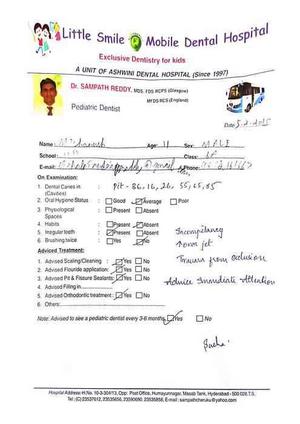 Little Smile Mobile Dental Hospital
Exclusive Dentistry for kids
A UNIT OF ASHWINI DENTAL HOSPITAL (Since 1997)
Dr. SAMPATH REDDY, MDS, FDS RCPS (Glasgow)
MFDS RCS (England)
Pediatric Dentist
Date
Name: Age: 11 Sex: MALE
School: Class:
E-mail Phone:
On Examination:
1. Dental Caries in (Cavities) : Pit - 36, 16, 26, 55, 65, 85
2. Oral Hygiene Status : Good Average Poor
3. Physiological Spaces : Present Absent
4. Habits : Present Absent
5. Irregular teeth : Present Absent
6. Brushing twice : Yes No
Incompetency
Trauma from occlusion
Advice Immediate Attention
Adviced Treatment:
1. Advised Scaling/Cleaning : Yes No
2. Advised Fluoride application: Yes No
3. Advised Pit & Fissure Sealants: Yes No
4. Advised Filling in
5. Advised Orthodontic treatment : Yes No
6. Others:
Note: Advised to see a pediatric dentist every 3-6 months. Yes No
Hospital Address: H.No. 10-3-304/13, Opp: Post Office, Humayunnagar, Masab Tank, Hyderabad - 500 028.T.S.
Tel: (C) 23537612, 23535656, 23590690, 23535858, E-mail: sampathcheruku@yahoo.com